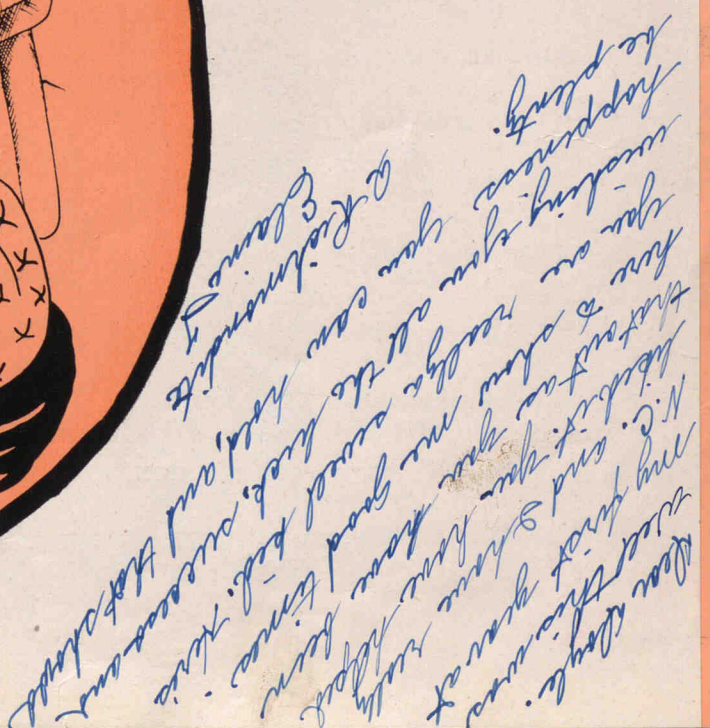 Dear Doyle:
Well this was
my first year at
N.C. and I have really
liked it. You have helped
that out as you have been
here to show me good times.
You are really a swell kid. Here's
wishing you all the luck, success and
happiness you can hold, and that should
be plenty.
A Richmondite
Elaine